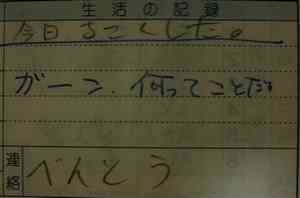 生活の記録
今日ちこくした。
ガーン、何ってことだ
連絡
べんとう